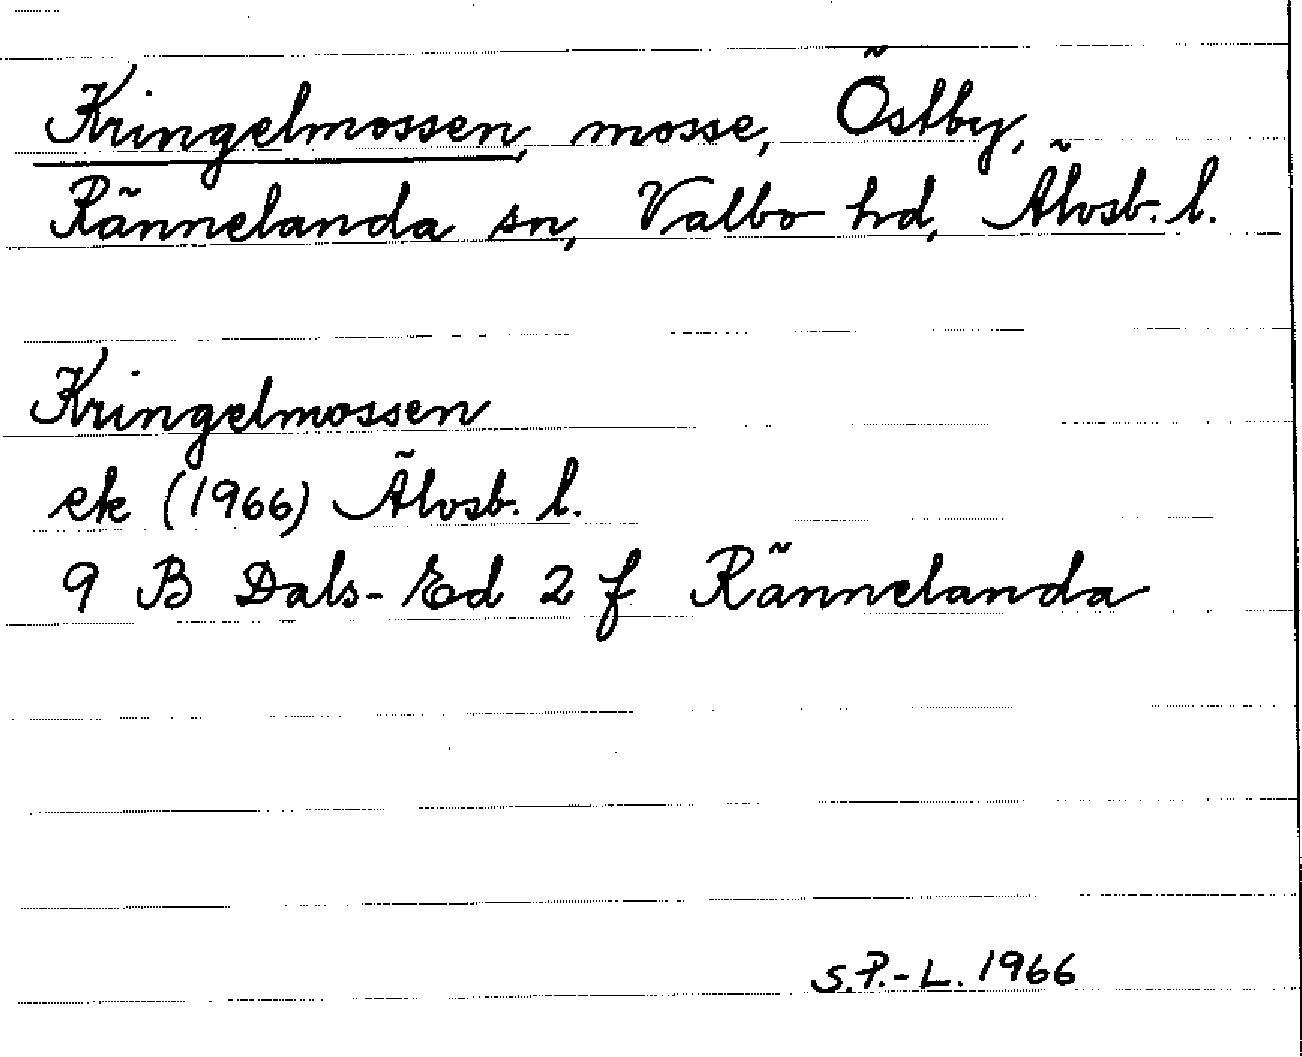 Kringelmossen, mosse, Östby,
Rännelanda sn, Valbo hd, Älvsb. l.
Kringelmossen
ek (1966) Älvsb. l.
9 B Dals-Ed 2 f Rännelanda
S.P.-L. 1966